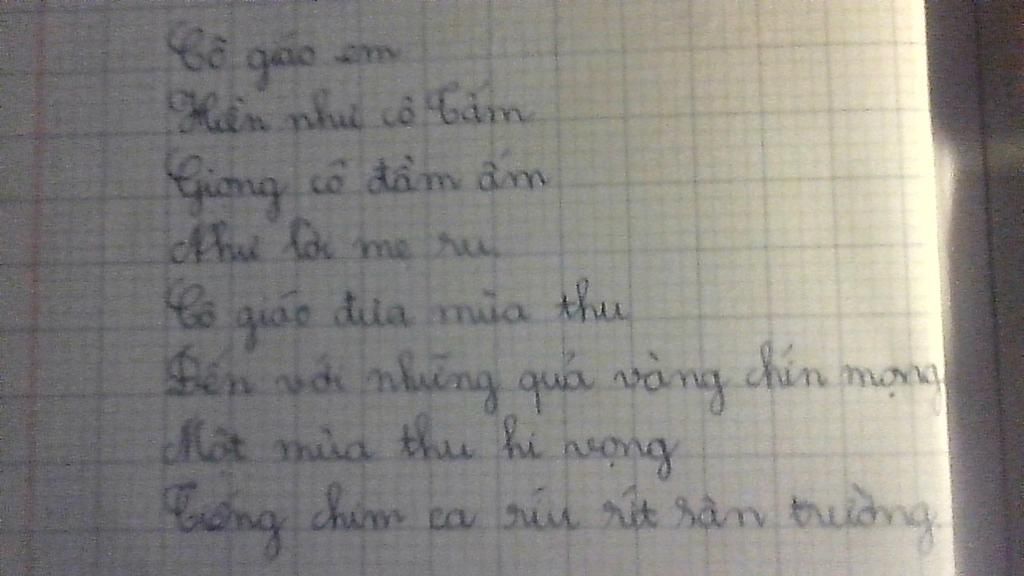 Cô giáo em
Hiền như cô Tấm
Giọng cô đầm ấm
Như lời mẹ ru
Cô giáo đưa mùa thu
Đến với những quả vàng chín mọng
Một mùa thu hi vọng
Tiếng chim ca ríu rít sân trường.